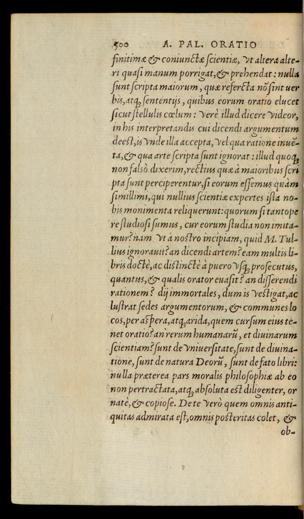 500 A. PAL. ORATIO
finitimæ & coniunctæ scientiæ, ut altera alte-
ri quasi manum porrigat, & prehendat: nulla
sunt scripta maiorum, quæ referta nõ sint uer
bis, atq, sententijs, quibus eorum oratio elucet
sicut stellulis cœlum: Verè illud dicere videor,
in his interpretandis cui dicendi argumentum
deest, is vnde illa accepta, vel qua ratione inuẽ-
ta, & qua arte scripta sunt ignorat: illud quoq,
non falsò dixerim, rectius quæ à maioribus scri
pta sunt perciperentur, si eorum essemus quàm
simillimi, qui nullius scientiæ expertes ista no-
bis monimenta reliquerunt: quorum si tantope
re studiosi sumus, cur eorum studia non imita-
mur? nam vt à nostro incipiam, quid M. Tul-
lius ignorauit? an dicendi artem? eam multis li-
bris doctè, ac distinctè à puero vsq, prosecutus,
quantus, & qualis orator euasit? an disserendi
rationem? dij immortales, dum is vestigat, ac
lustrat sedes argumentorum, & communes lo
cos, per aspera, atq, arida, quem cursum eius te-
net oratio? an rerum humanarũ, et diuinarum
scientiam? sunt de vniuersitate, sunt de diuina-
tione, sunt de natura Deorũ, sunt de fato libri:
nulla præterea pars moralis philosophiæ ab eo
non pertractata, atq, absoluta est diligenter, or
natè, & copiose. De te verò quem omnis anti-
quitas admirata est, omnis posteritas colet, &
ob-